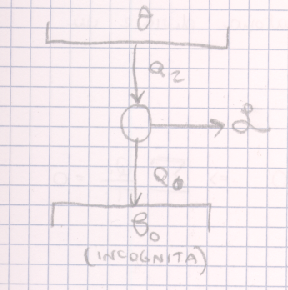 θ
Q₂
ℒ
Q₀
θ₀
(INCOGNITA)